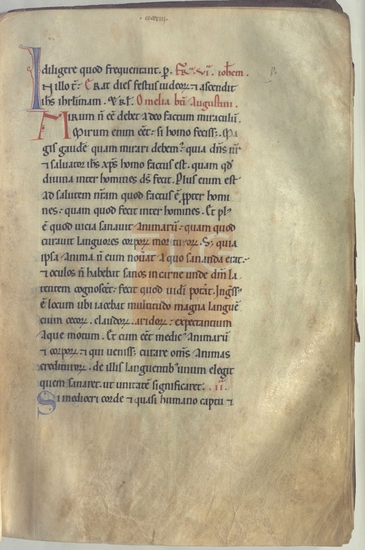 diligere quod frequentant. p. Fr. vi. ioħem.
N illo t̄. Erat dies festus iudeorꝝ ⁊ ascendit
ihs iherlimam. ⁊ rł. Omelia bēi Augustini.
MIRUM n̄ ēē debet a deo factum miraculū.
Mirum enim ēēt: si homo fecisset. Ma
gis gaudē quam mirari debem᷒ quia dn̄s n̄r
⁊ saluator ihs xp̄s homo factus est. quam qđ
diuina inter homines ds̄ fecit. Plus enim est
ad salutem nr̄am quod factus ē ꝓpter homi
nes: quam quod fecit inter homines. Et pl᷒
ē quod uicia sanauit animarū: quam quod
curauit languores corporꝝ moriturorꝝ. S; quia
ipsa anima n̄ eum nouat a quo sananda erat:
⁊ oculos n̄ habebat sanos in corde unde dm̄ la
tentem cognosceret: fecit quod uidi poterat. Ingress᷒
ē locum ubi iacebat multitudo magna languē
tium cecorꝝ. claudorꝝ. aridorꝝ: expectantium
aque motum. Et cum ēēt medic᷒ animarū
⁊ corporꝝ: ⁊ qui uenisset curare om̄s animas
crediturorꝝ. de illis languentib᷒ unum elegit
quem sanaret. ut unitatē significaret. ii.
Si mediocri corde ⁊ quasi humano captu ⁊